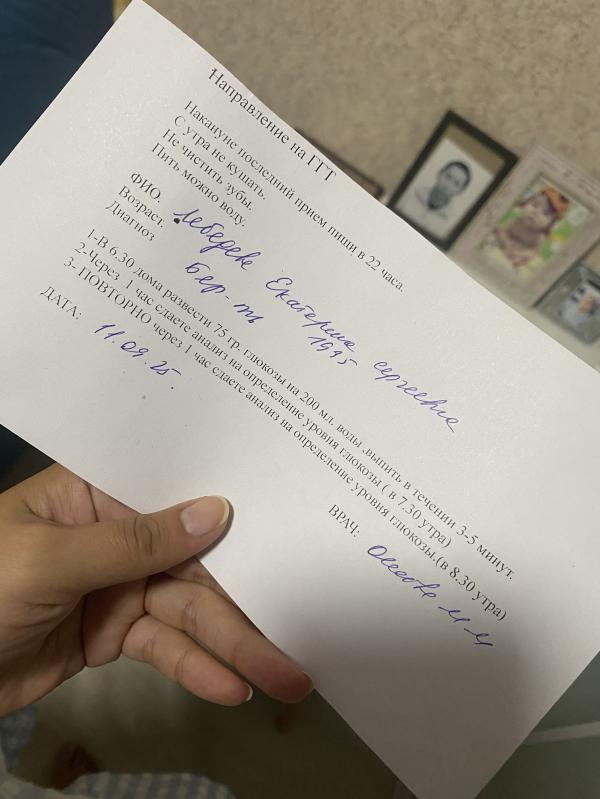 Направление на ГТТ
Накануне последний прием пищи в 22 часа.
С утра не кушать.
Не чистить зубы.
Пить можно воду.
ФИО. Лебедева Екатерина Сергеевна
Возраст. 1995
Диагноз Бер-ть
1-В 6.30 дома развести 75 гр. глюкозы на 200 мл. воды ,выпить в течении 3-5 минут.
2-Через 1 час сдаете анализ на определение уровня глюкозы ( в 7.30 утра)
3- ПОВТОРНО через 1 час сдаете анализ на определение уровня глюкозы.(в 8.30 утра)
ДАТА: 11.09.25.
ВРАЧ: